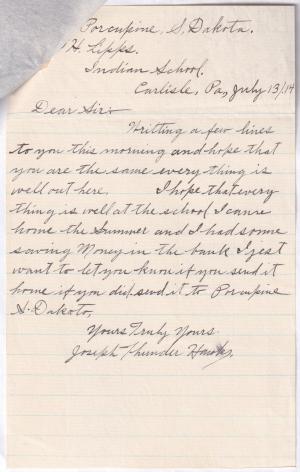 Porcupine, S. Dakota.
H. Lipps.
Indian School.
Carlisle, Pa, July 13/14
Dear Sir:-
Writting a few lines
to you this morning and hope that
you are the same every thing is
well out here. I hope that every
thing is well at the school I came
home the Summer and I had some
saving Money in the bank I jest
want to let you know if you send it
home if you did send it to Porcupine
S. Dakota,
Yours Truly Yours.
Joseph Thunder Hawk,